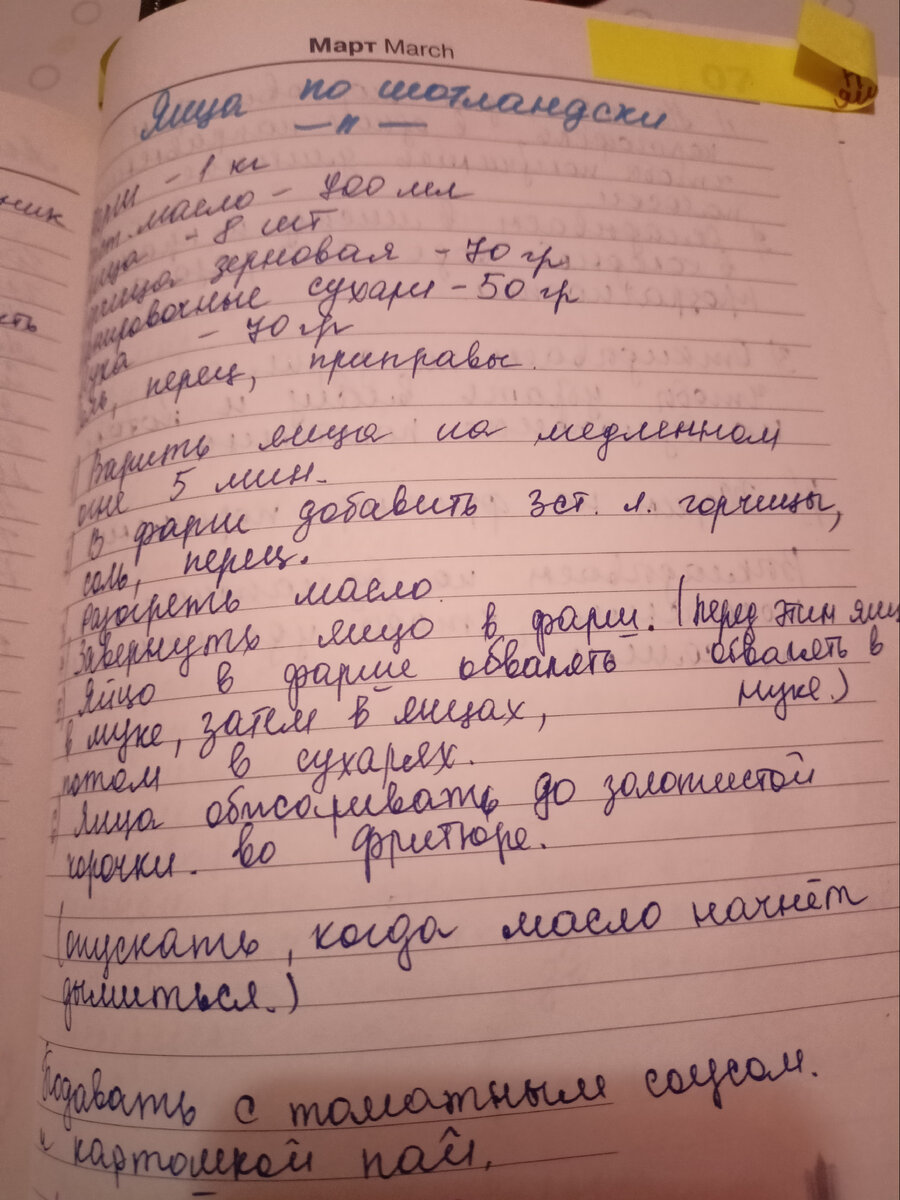 Март March
Яйца по шотландски
— " —
фарш - 1 кг
раст. масло - 900 мл
яйца - 8 шт
горчица зерновая - 70 гр
панировочные сухари - 50 гр
мука - 70 гр
соль, перец, приправы.
Варить яйца на медленном
огне 5 мин.
В фарш добавить 3 ст. л. горчицы,
соль, перец.
разогреть масло
Завернуть яйцо в фарш. (перед этим яйц
Яйцо в фарше обвалять обвалять в
в муке, затем в яйцах, муке.)
потом в сухарях.
Яйца обжаривать до золотистой
корочки. во фритюре.
(опускать, когда масло начнёт
дымиться.)
Подавать с томатным соусом.
и картошкой пай.
ник
сть